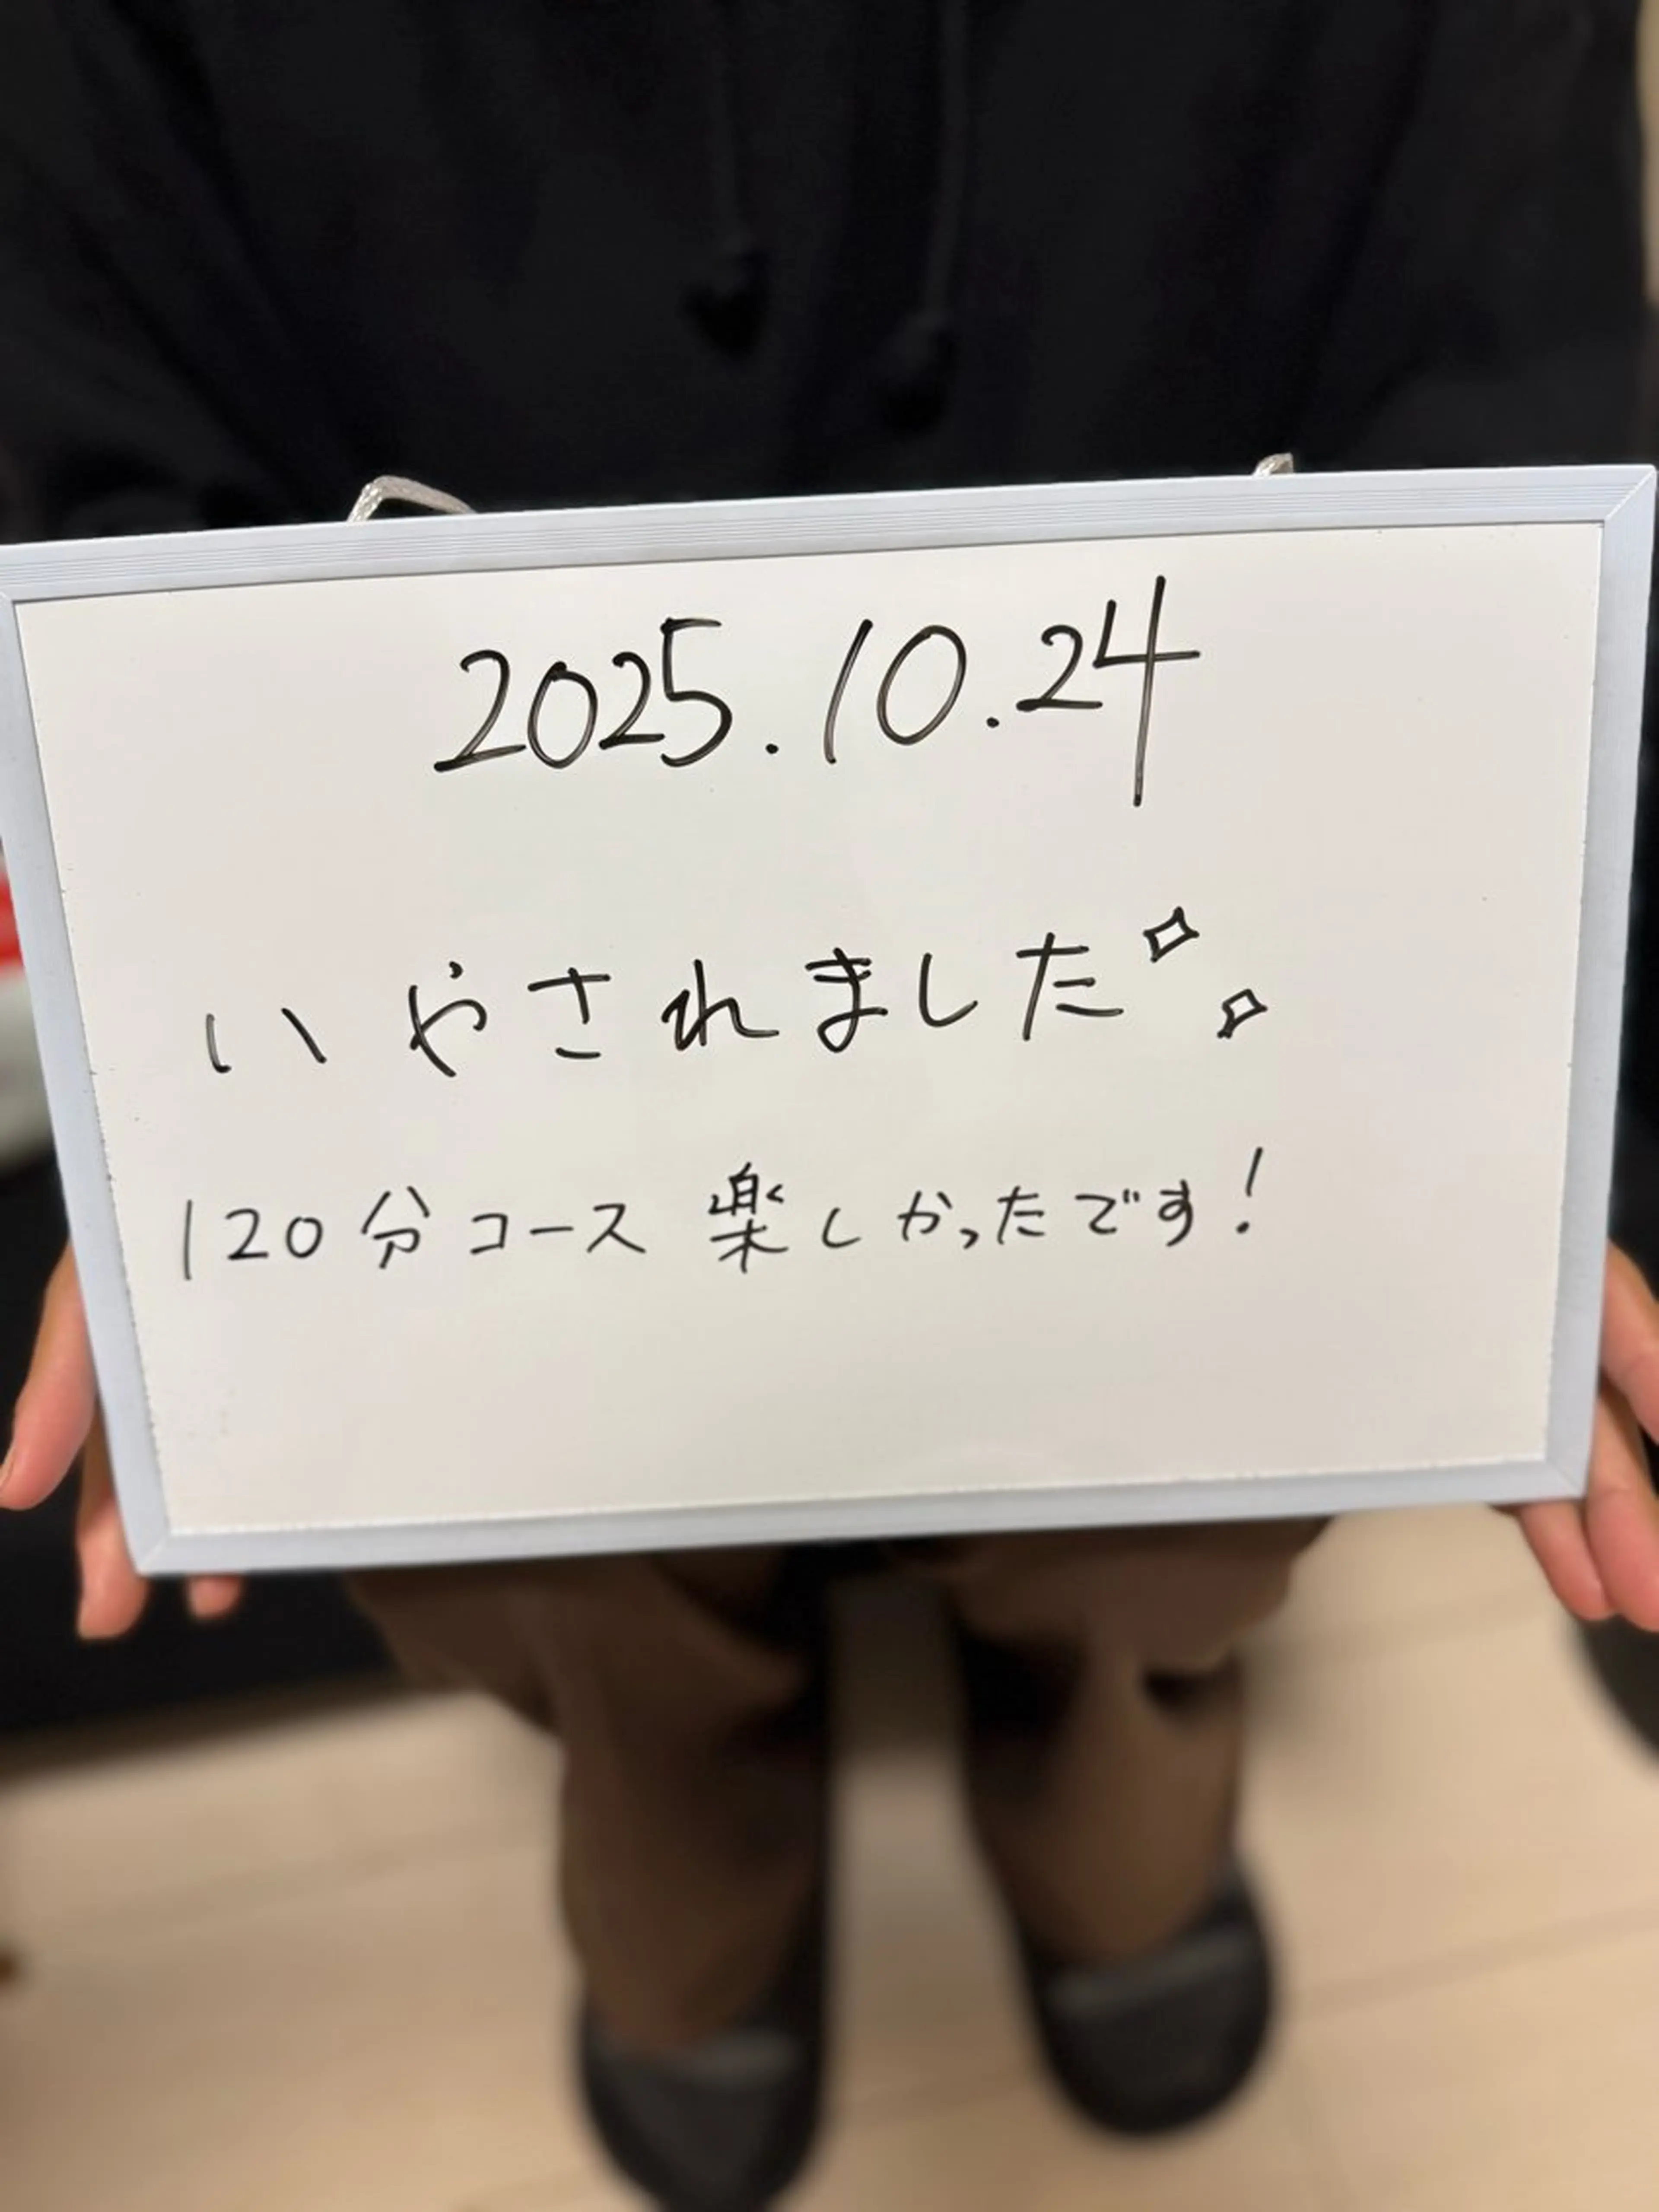 2025.10.24
いやされました✧✧
120分コース 楽しかったです!